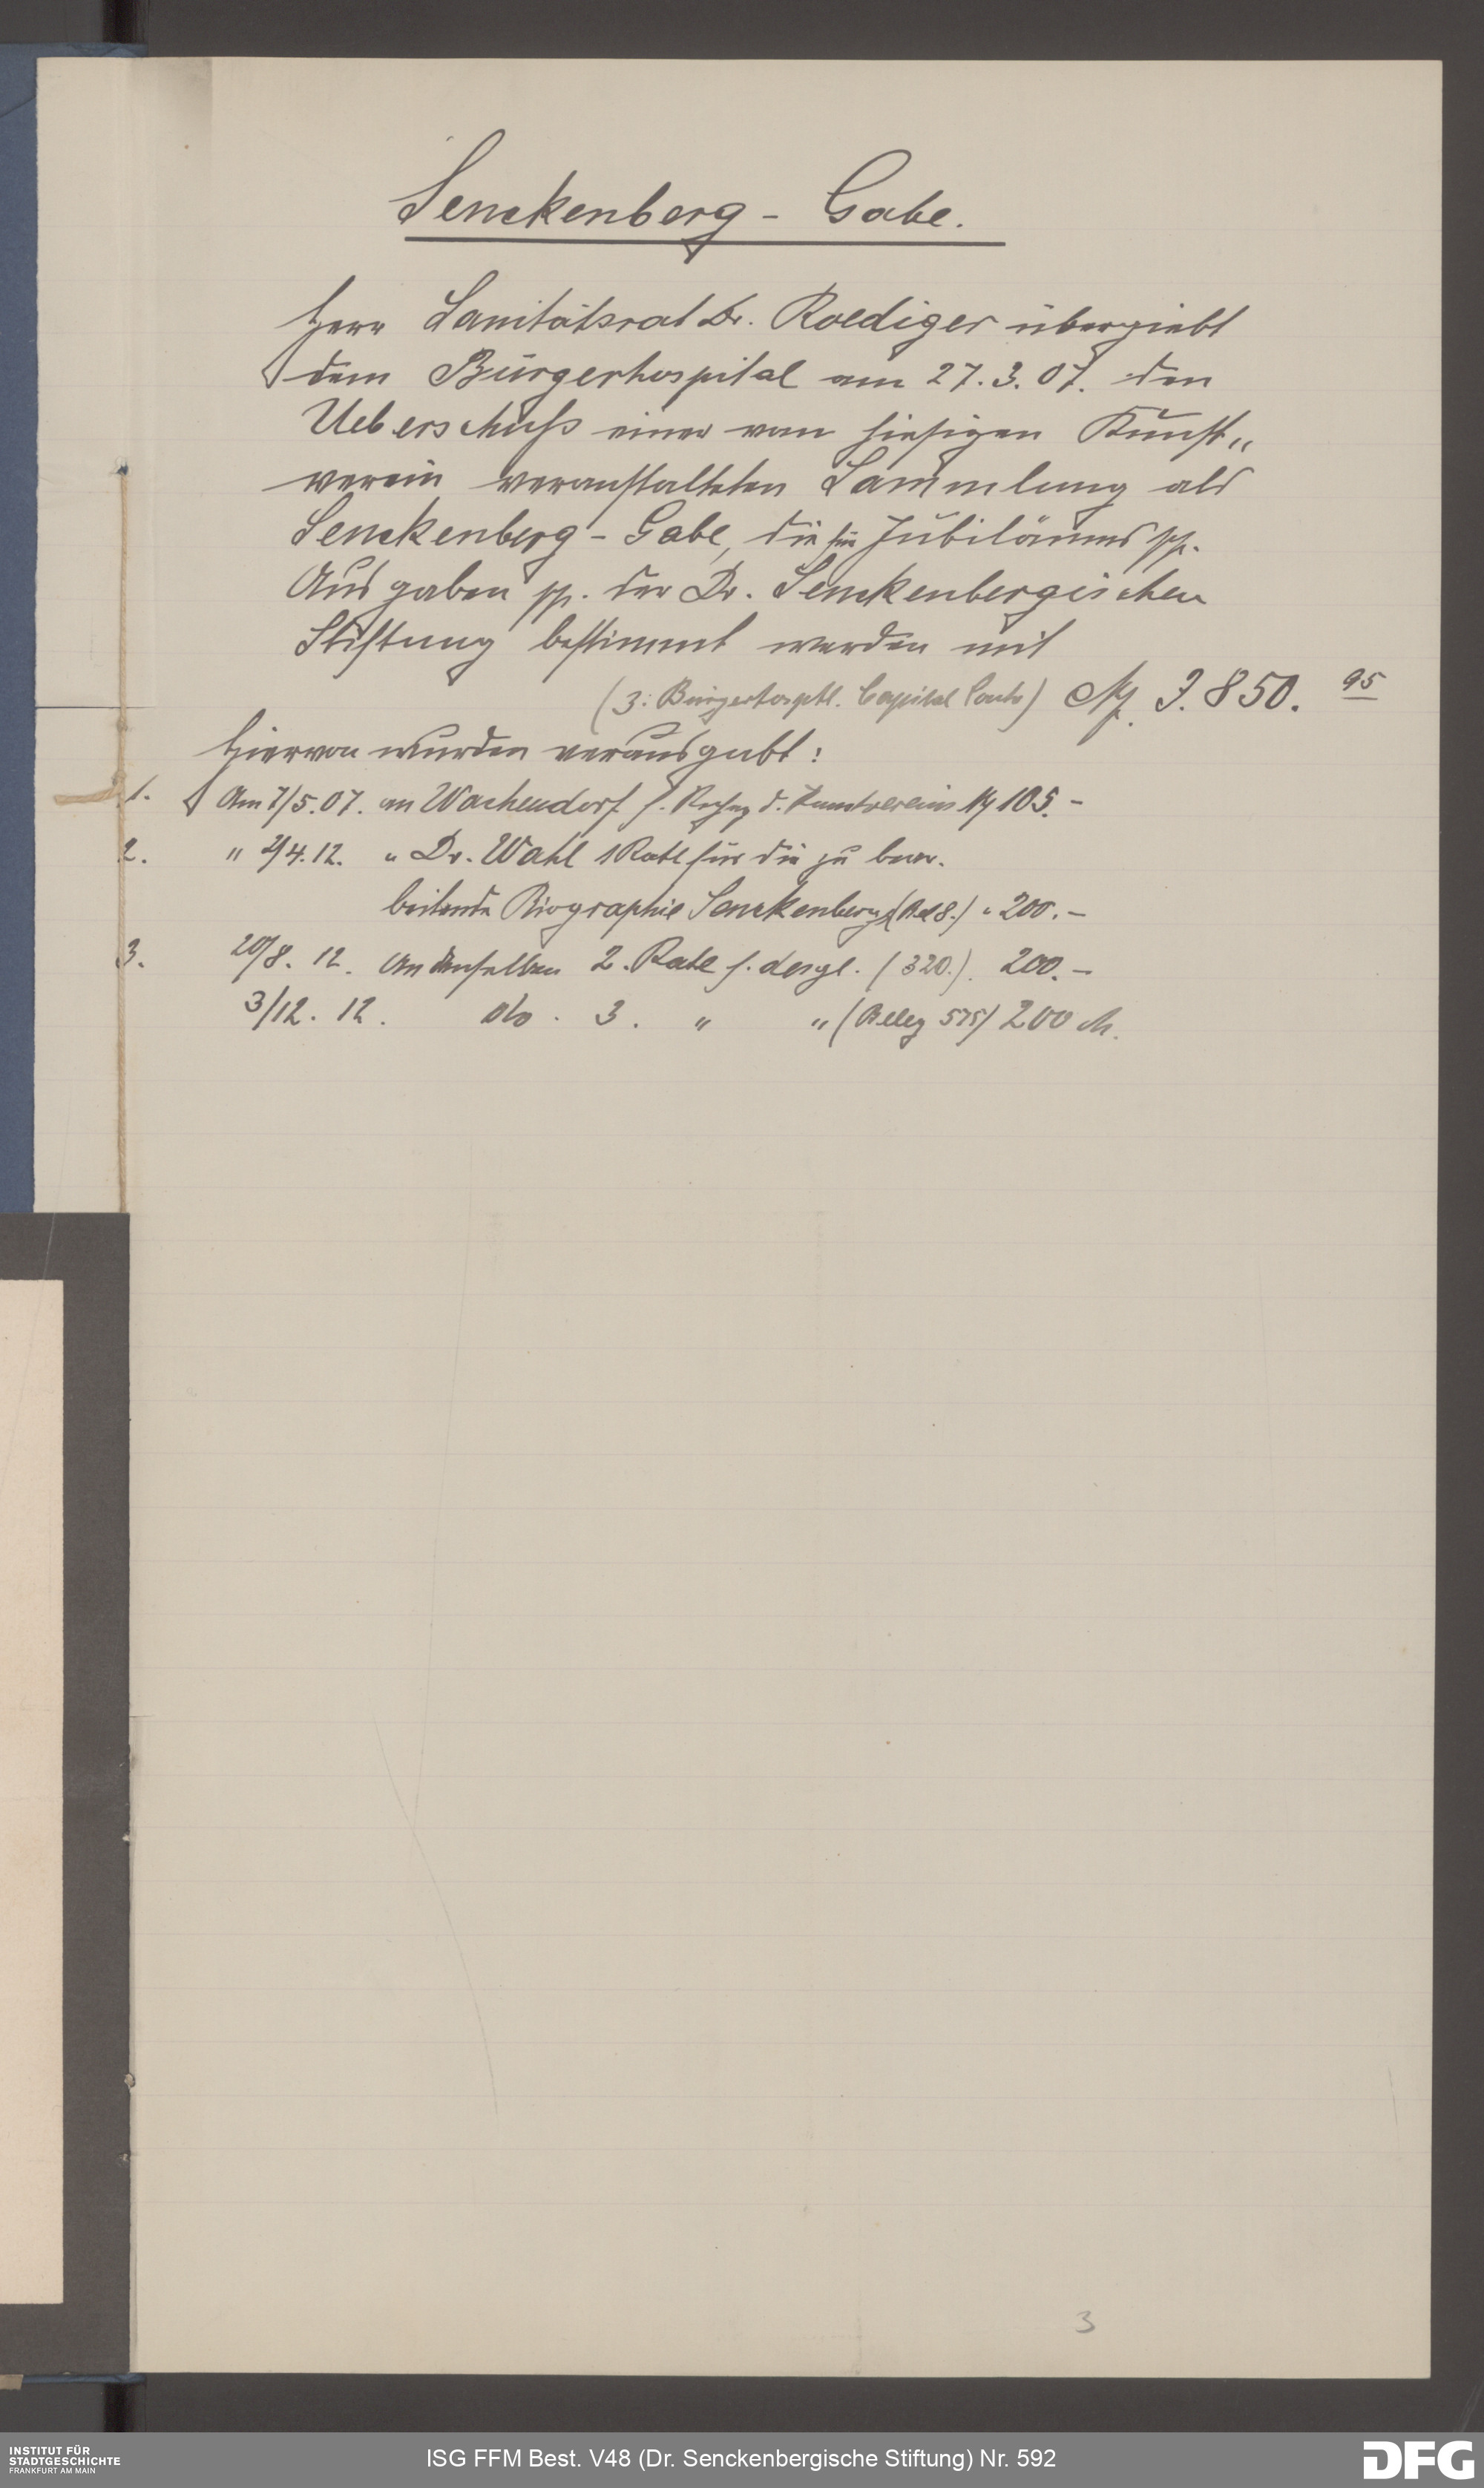 Senckenberg - Gabe.
Herr Sanitätsrat Dr. Roediger übergiebt
dem Bürgerhospital am 27.3.07. den
Ueberschuss einer vom hiesigen Kunst„
verein veranstalteten Sammlung als
Senckenberg - Gabe, die für Jubiläums pp.
Ausgaben pp. der Dr. Senckenbergischen
Stiftung bestimmt werden mit
(3: Bürgerhosptl. Capital Conto) M. 3.850. 95
Hiervon wurden verausgabt:
1. Am 7/5.07. an Wachendorf f. Rechng d. Kunstvereins M 105.-
2. " 2/4.12. " Dr. Wahl 1 Rate für die zu bear-
beitende Biographie Senckenbergs (Bel 8.) " 200.-
3. 20/8. 12. An denselben 2. Rate f. desgl. (320.) 200.-
3/12. 12. do. 3. " " (Beleg 575) 200 M.
3
INSTITUT FÜR
STADTGESCHICHTE
FRANKFURT AM MAIN
ISG FFM Best. V48 (Dr. Senckenbergische Stiftung) Nr. 592
DFG